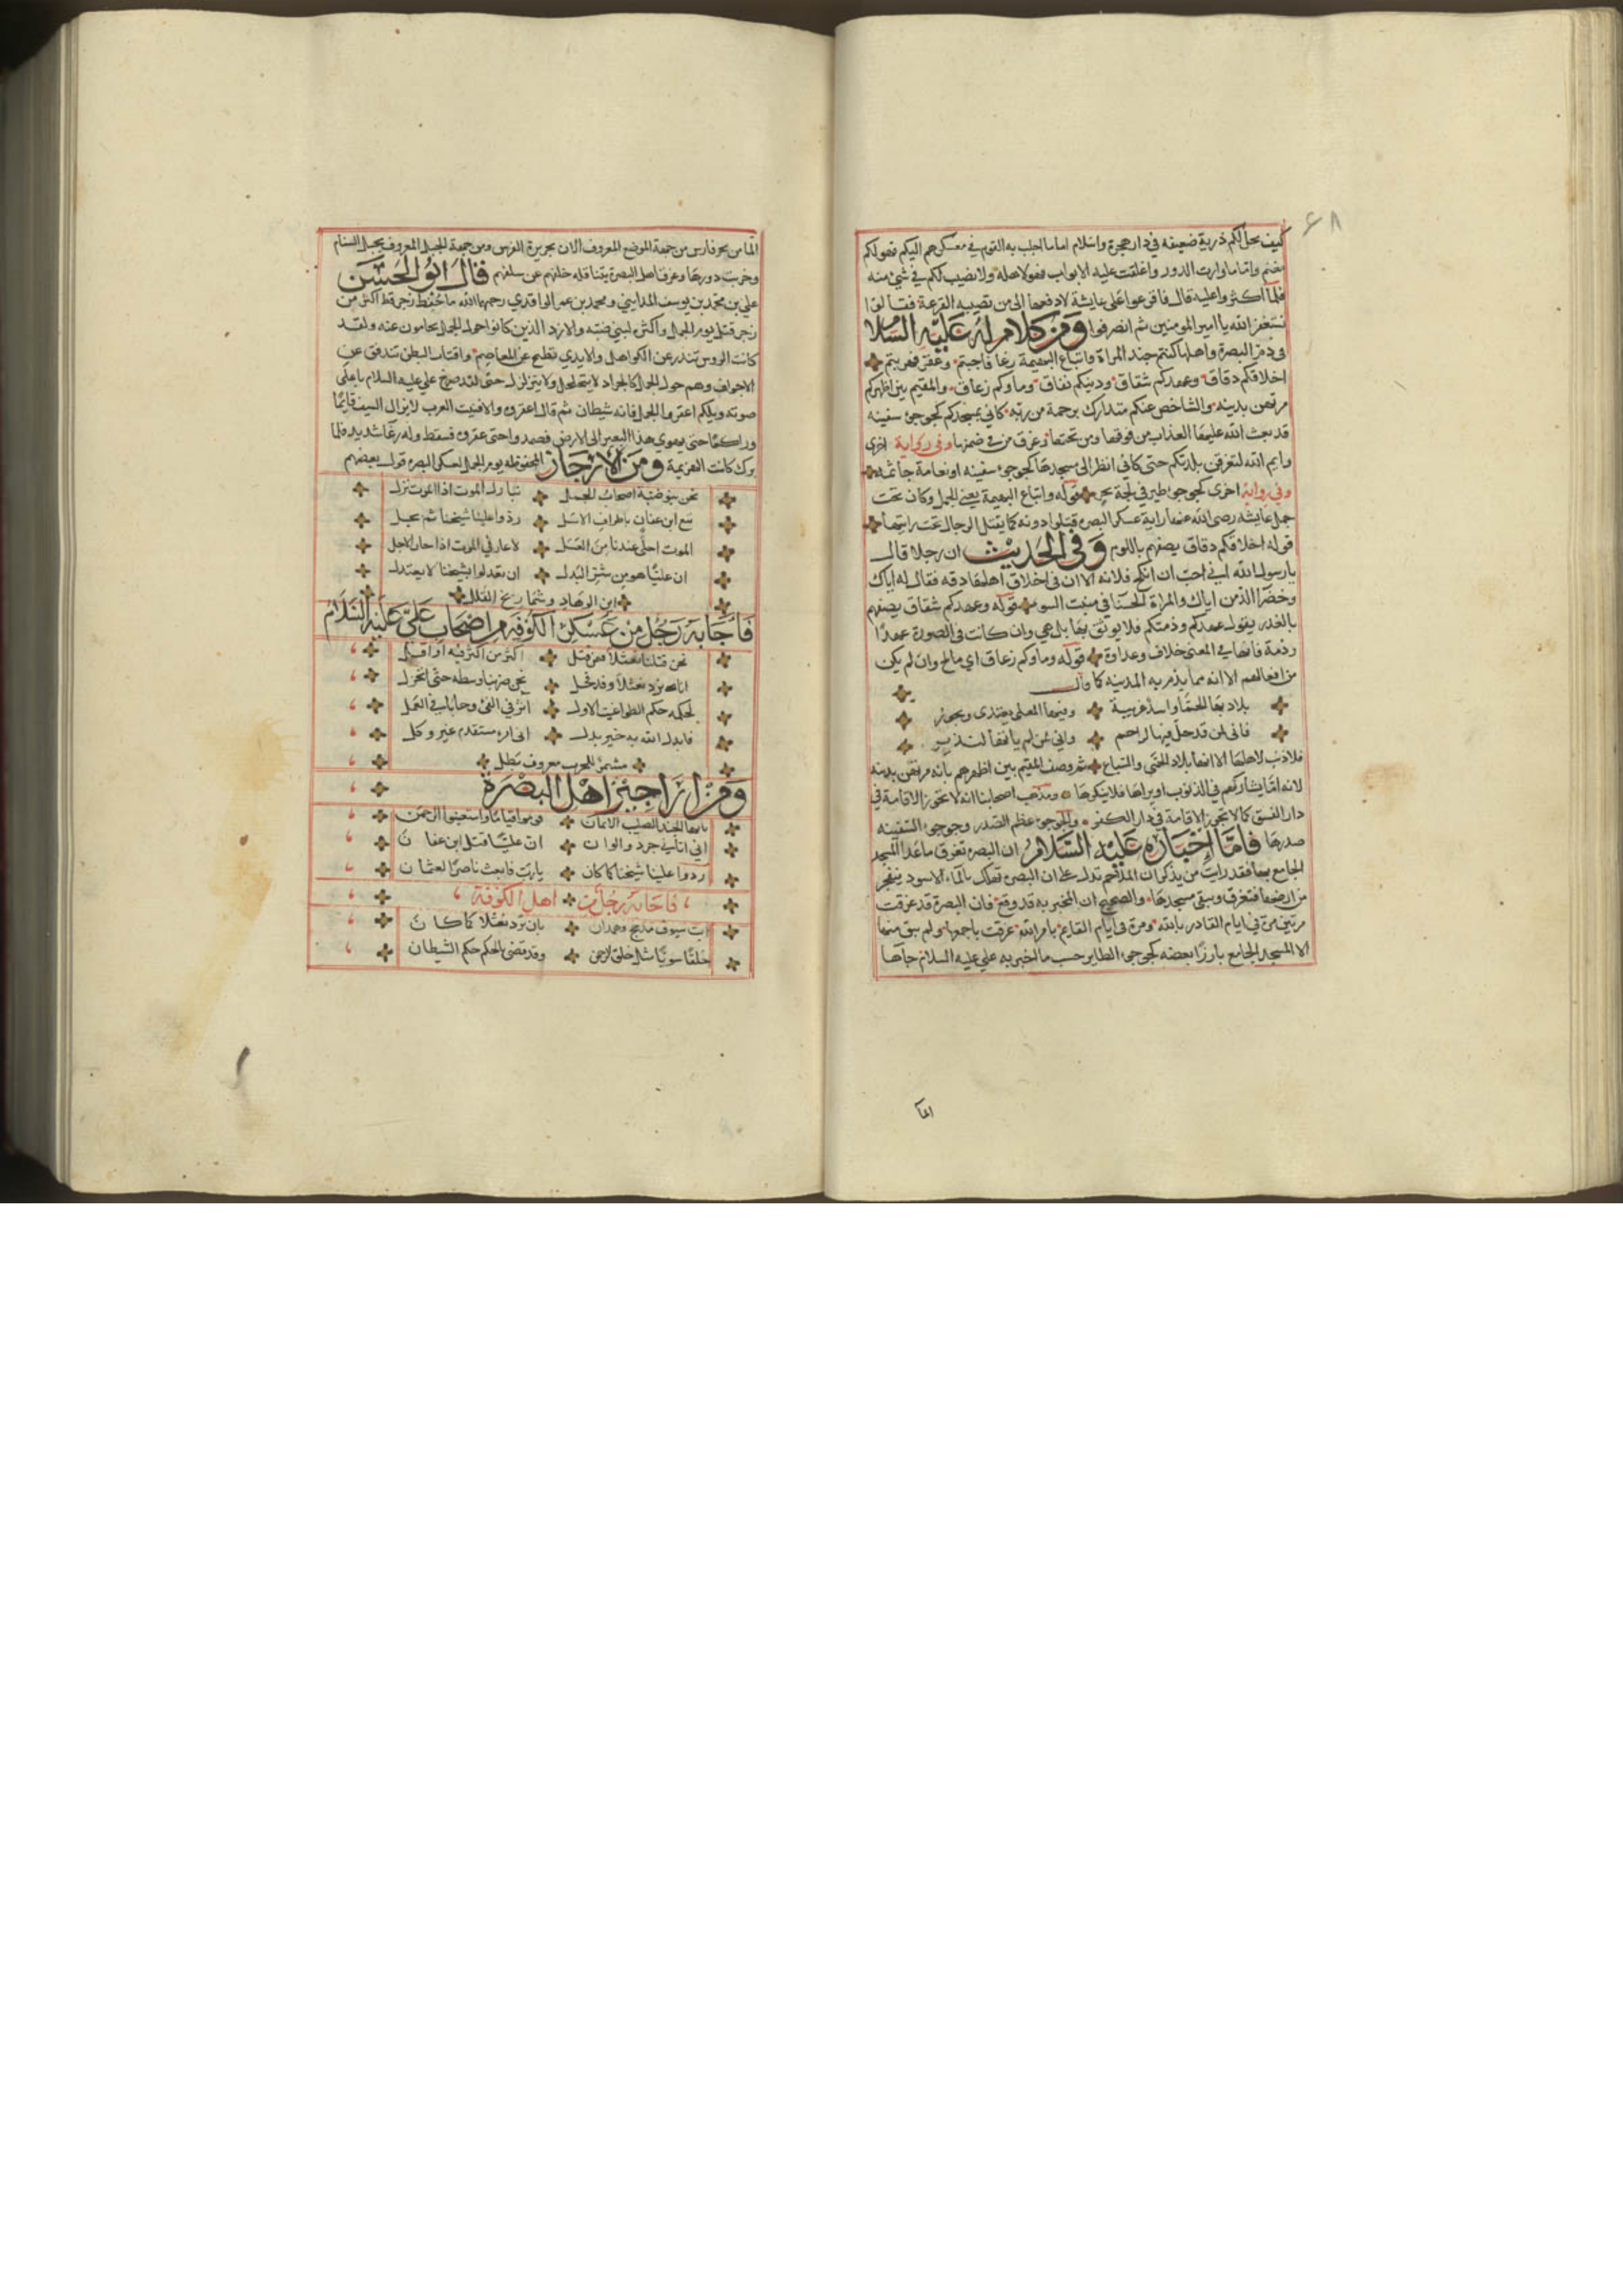 كيف يحل لكم ذرية ضعيفة في دار هجرة واسلام اما ما اجلب به القوم في معسكرهم اليكم فهو لكم
مغنم واما ما وارت الدور واغلقت عليه الابواب فهو لاهله ولا نصيب لكم في شئ منه
فلما اكثروا عليه قال فاقرعوا على عايشة لادفعها الى من تصيبه القرعة فقالوا
نستغفر الله يا امير المومنين ثم انصرفوا ومن كلام له عليه السلام
في ذم البصرة واهلها كنتم جند المراة واتباع البهيمة رغا فاجبتم وعقر فهربتم
اخلاقكم دقاق وعهدكم شقاق ودينكم نفاق وماوكم زعاق والمقيم بين اظهركم
مرتهن بذنبه والشاخص عنكم متدارك برحمة من ربه كاني بمسجدكم كجوجو سفينه
قد بعث الله عليها العذاب من فوقها ومن تحتها وغرق من في ضمنها وفي رواية اخرى
وايم الله لتغرقن بلدتكم حتى كاني انظر الى مسجدها كجوجو سفينه او نعامة جاثمه
وفي رواية اخرى كجوجو طير في لجة بحر قوله واتباع البهيمة يعني الجمل وكان تحت
جمل عايشه رضى الله عنها راية عسكر البصره قتلوا دونه كما يقتل الرجال تحت راياتها
قوله اخلاقكم دقاق يصفهم باللوم وفي الحديث ان رجلا قال
يا رسول الله اني احب ان انكح فلانه الا ان في اخلاق اهلها دقه فقال له اياك
وخضرا الدمن اياك والمراة الحسنا في منبت السو قوله وعهدكم شقاق يصفهم
بالغدر يقول عهدكم وذمتكم فلا يوثق بها بل هي وان كانت في الصورة عهدا
وذمة فانها في المعنى خلاف وعداوة قوله وماوكم زعاق اي مالح وان لم يكن
من افعالهم الا انه مما يذم به المدينه كما قال
بلاد بها الحمى واسد غريبة وفيها المعلى يعتدى ويجور
فاني لمن قد حل فيها لراحم واني لمن لم ياتها لنذير
فلا ذنب لاهلها الا انها بلاد الحمى والسباع ثم وصف المقيم بين اظهرهم بانه مرتهن بذنبه
لانه اما يشاركهم في الذنوب او يراها فلا ينكرها ومذهب اصحابنا انه لا تجوز الاقامة في
دار الفسق كما لا تجوز الاقامة في دار الكفر والجوجو عظم الصدر وجوجو السفينه
صدرها فاما اخباره عليه السلام ان البصره تغرق ما عدا المسجد
الجامع بها فقد رايت من يذكر ان الملاحم تدل على ان البصره تهلك بالماء الاسود ينفجر
من ارضها فتغرق ويبقى مسجدها والصحيح ان المخبر به قد وقع فان البصرة قد غرقت
مرتين مرة في ايام القادر بالله ومرة في ايام القايم بامر الله غرقت باجمعها ولم يبق منها
الا المسجد الجامع بارزا بعضه كجوجو الطاير حسب ما اخبر به علي عليه السلام جاها
الما
الما من بحر فارس من جهة الموضع المعروف الان بجزيرة الفرس ومن جهة الجبل المعروف بجبل السنام
وخربت دورها وغرق اهل البصرة يتناقله خلفهم عن سلفهم قال ابو الحسن
علي بن محمد بن يوسف المدايني ومحمد بن عمر الواقدي رحمهما الله ما حفظ رجز قط اكثر من
رجز قيل يوم الجمل واكثره لبني ضبة والازد الذين كانوا حول الجمل يحامون عنه ولقد
كانت الروس تندر عن الكواهل والايدي تطيح عن المعاصم واقتاب البطن تندلق عن
الاجواف وهم حول الجمل كالجراد لا تتحلحل ولا يتزلزل حتى لقد صرخ علي عليه السلام باعلى
صوته ويلكم اعقروا الجمل فانه شيطان ثم قال اعقروه والا فنيت العرب لا يزال السيف قايما
وراكعا حتى يهوي هذا البعير الى الارض فصمدوا حتى عقروه فسقط وله رغا شديد فلما
برك كانت الهزيمة ومن الارجاز المحفوظه يوم الجمل لعسكر البصره قول بعضهم
نحن بنو ضبة اصحاب الجمل تنازل الموت اذا الموت نزل
ننعى ابن عفان باطراف الاسل ردوا علينا شيخنا ثم بجل
الموت احلى عندنا من العسل لا عار في الموت اذا حان الاجل
ان عليا هو من شر البدل ان تعدلوا بشيخنا لا يعتدل
اين الوهاد وشماريخ القلل
فاجابه رجل من عسكر الكوفة من اصحاب علي عليه السلام
نحن قتلنا نعثلا فيمن قتل اكثر من اكثر فيه او اقل
انى يرد نعثلا وقد قحل نحن ضربنا وسطه حتى انخزل
لحكمه حكم الطواغيت الاول آثر في الفئ وجافى في العمل
فابدل الله به خير بدل اني امرء مستقدم غير وكل
مشمر للحرب معروف بطل
ومن اراجيز اهل البصرة
يا ايها الجند الصليب الايمان قوموا قياما واستعينوا الرحمن
اني اتاني خبر ذو الوان ان عليا قتل ابن عفان
ردوا علينا شيخنا كما كان يا رب فابعث ناصرا لعثمان
فاجابه رجل من اهل الكوفة
ابت سيوف مذحج وهمدان بان ترد نعثلا كما كان
خلقا سويا مثل خلق الرحمن وقد قضى بالحكم حكم الشيطان